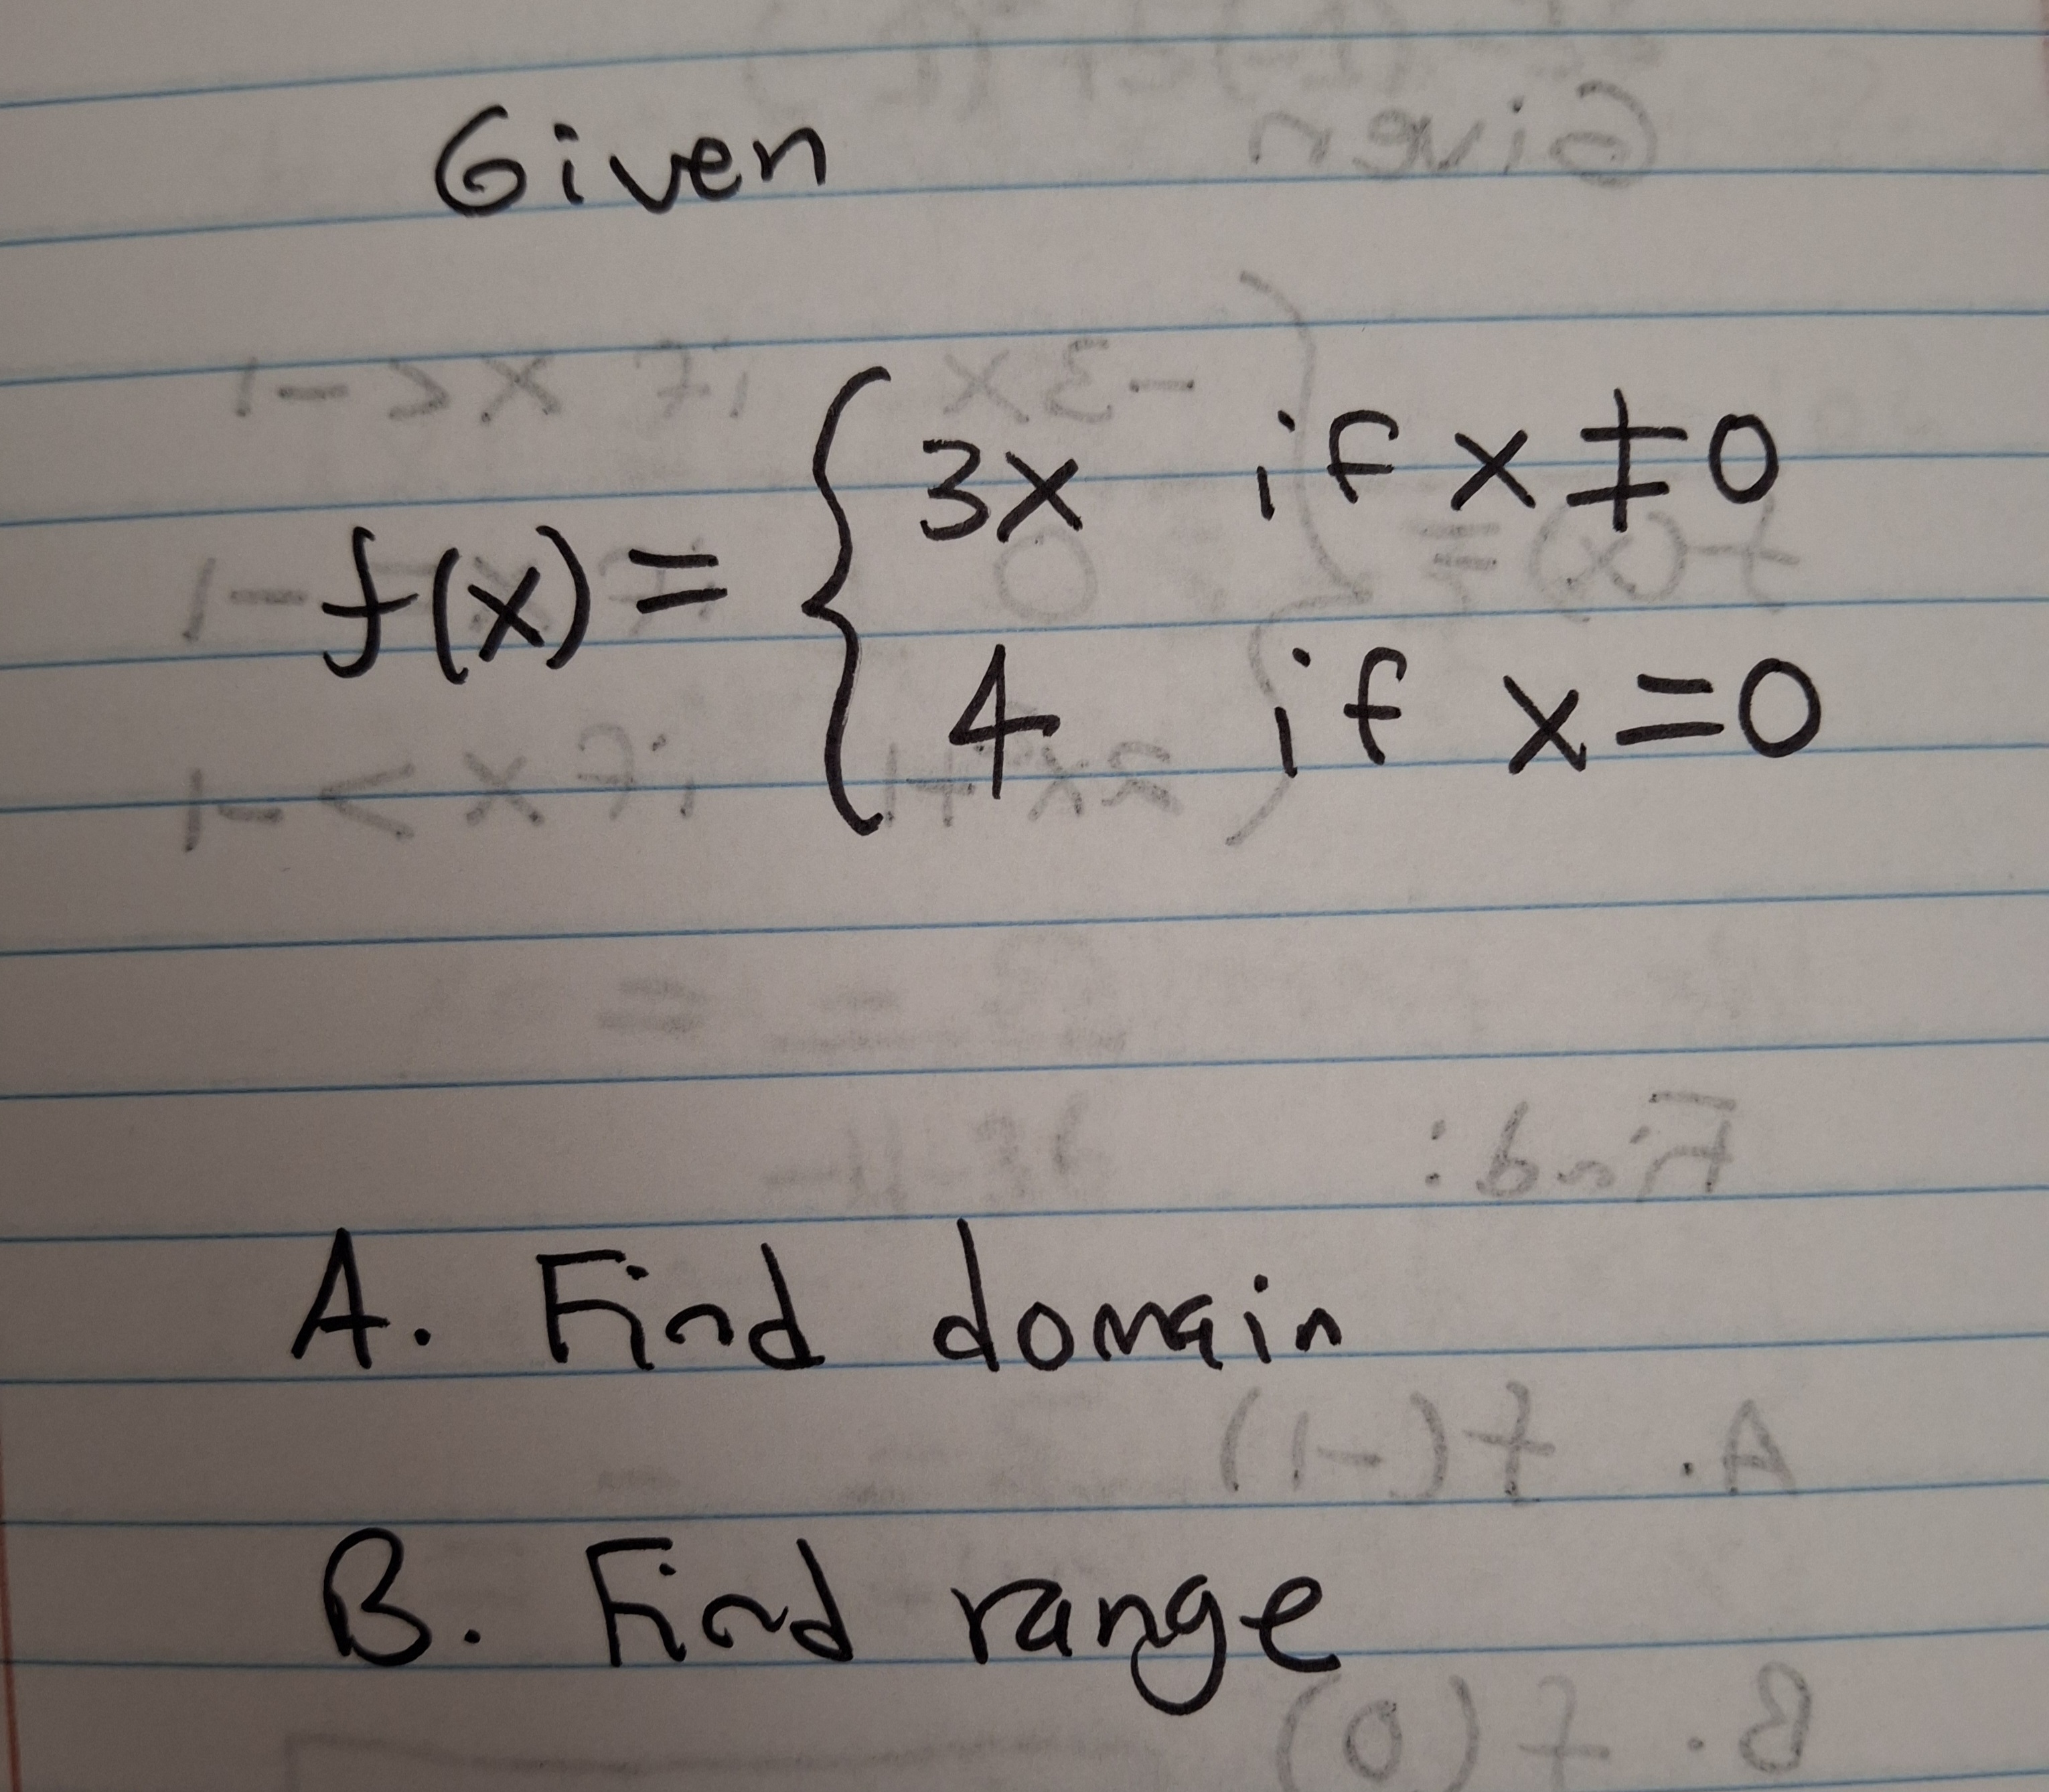 Given
f(x) = { 3x if x ≠ 0
4 if x = 0
A. Find domain
B. Find range